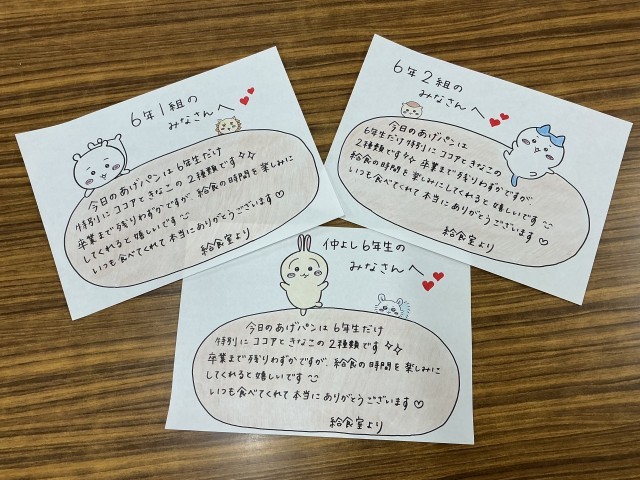 6年1組の
みなさんへ
今日のあげパンは6年生だけ
特別にココアときなこの2種類です
卒業まで残りわずかですが、給食の時間を楽しみに
してくれると嬉しいです
いつも食べてくれて本当にありがとうございます♡
給食室より
6年2組の
みなさんへ
今日のあげパンは
6年生だけ特別にココアときなこの
2種類です 卒業まで残りわずかですが
給食の時間を楽しみにしてくれると嬉しいです
いつも食べてくれて本当にありがとうございます♡
給食室より
仲よし6年生の
みなさんへ
今日のあげパンは6年生だけ
特別にココアときなこの2種類です
卒業まで残りわずかですが、給食の時間を楽しみに
してくれると嬉しいです
いつも食べてくれて本当にありがとうございます♡
給食室より